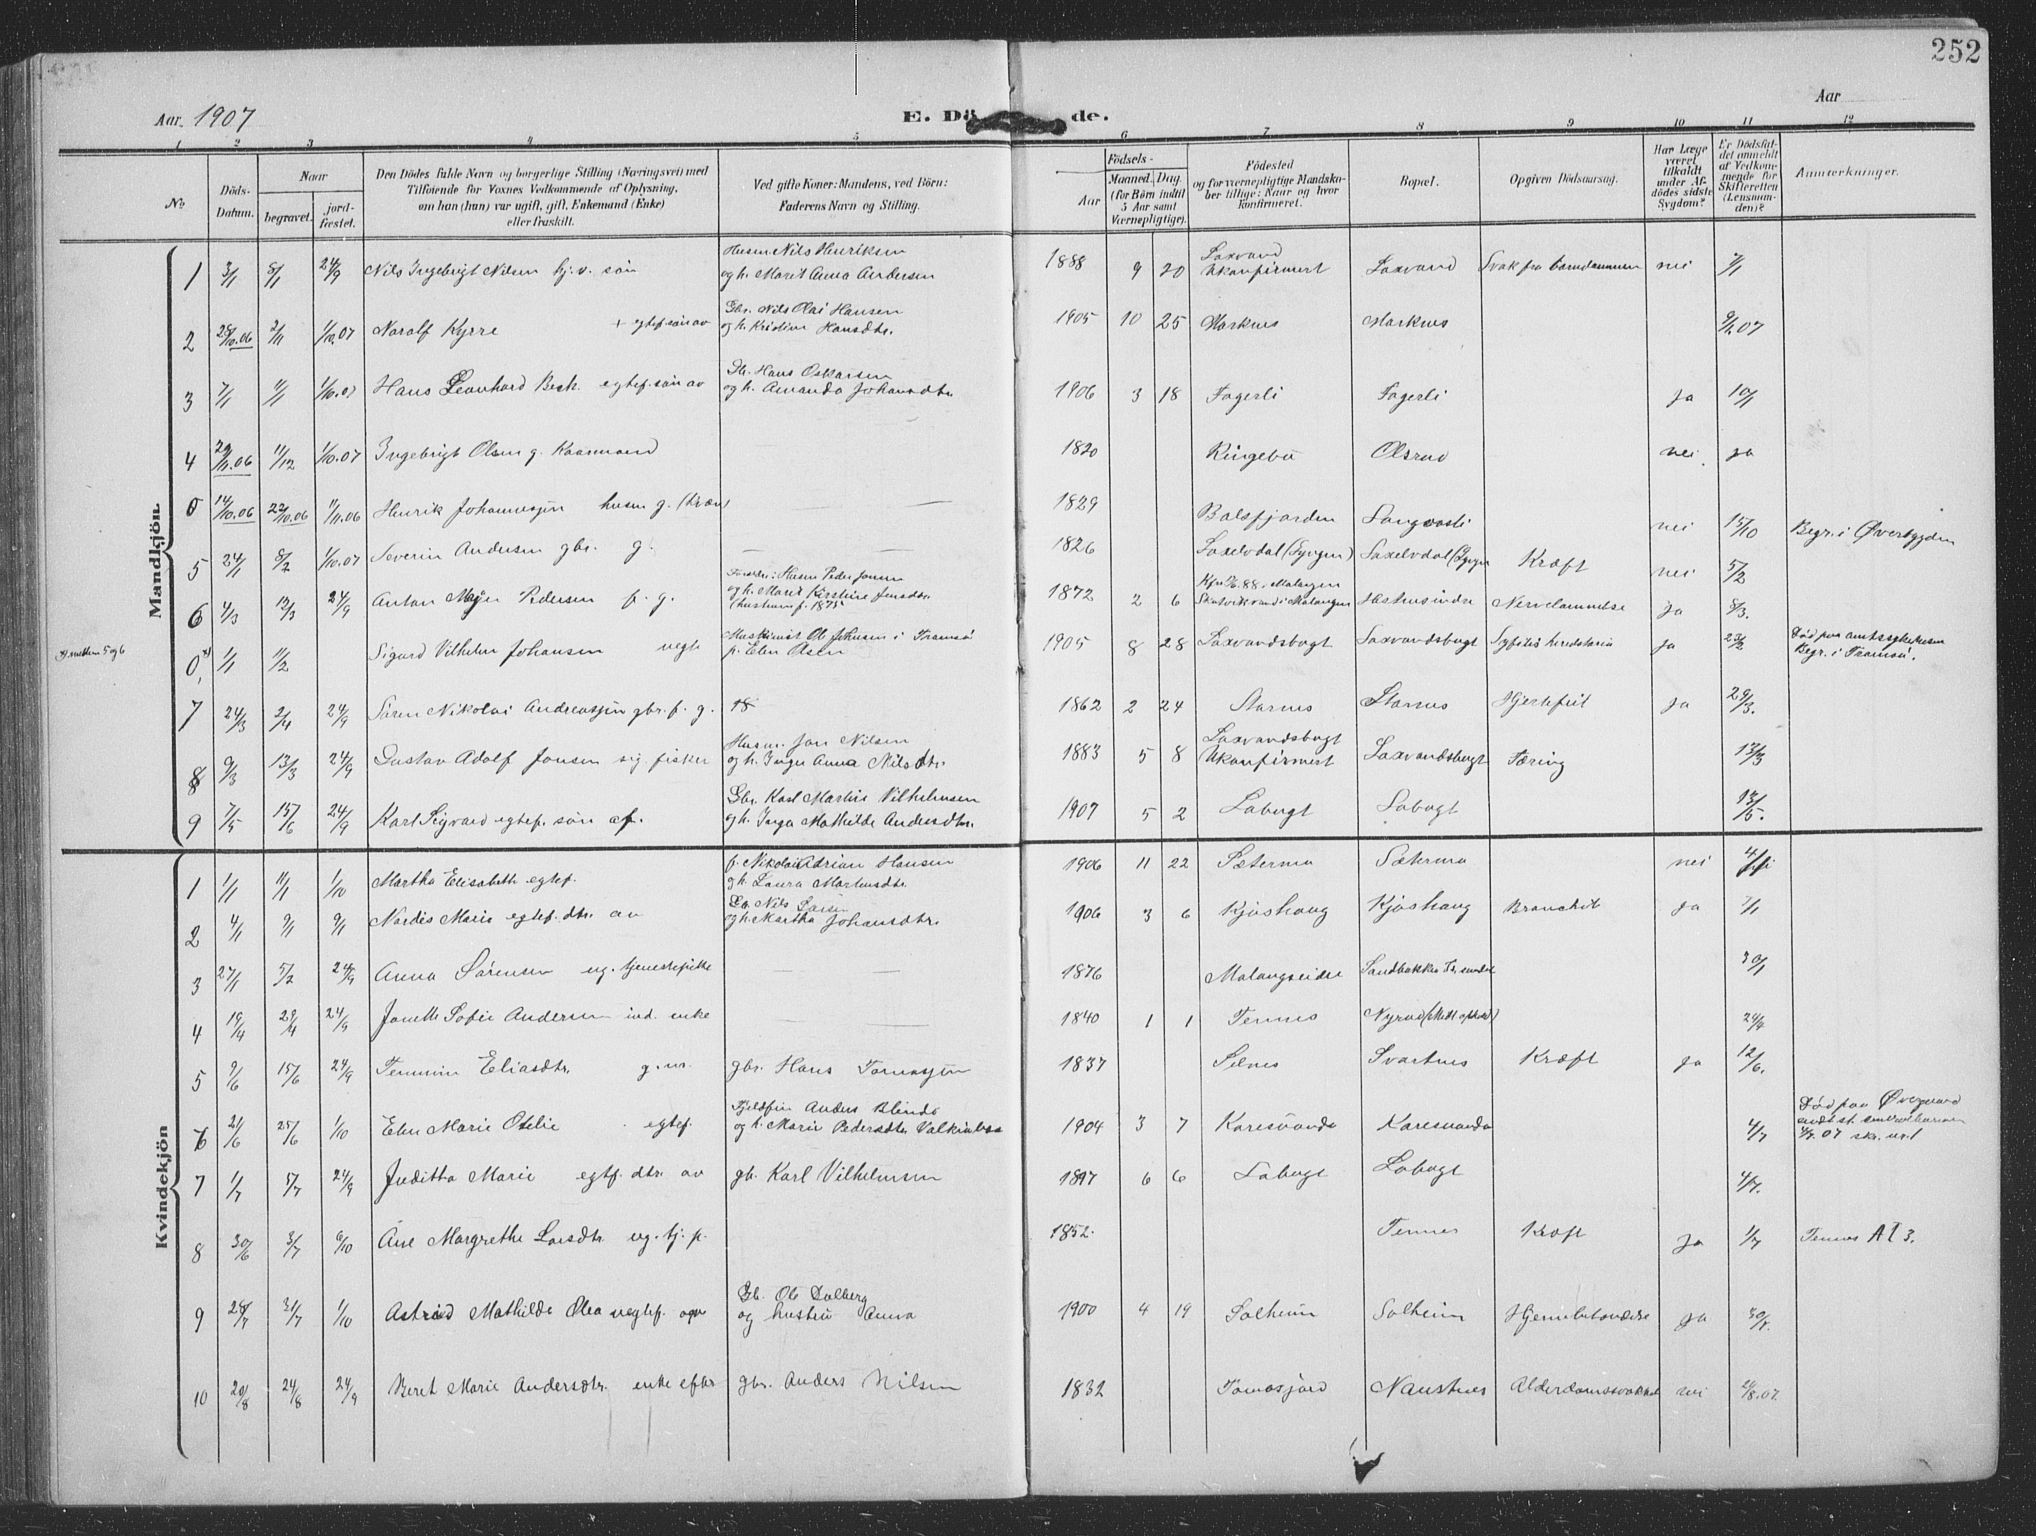 252
Aar 1907
E. Dö de.
Aar
1 2 3 4 5 6 7 8 9 10 11 12
No
Döds-Datum.
Naar
begravet. jord-fæstet.
Den Dödes fulde Navn og borgerlige Stilling (Næringsvei) med
Tilföiende for Voxnes Vedkommende af Oplysning,
om han (hun) var ugift, gift, Enkemand (Enke)
eller fraskilt.
Ved gifte Koner: Mandens, ved Börn:
Faderens Navn og Stilling.
Födsels-
Aar
Maaned. Dag.
(for Börn indtil
5 Aar samt
Værnepligtige).
Födested
og for værnepligtige Mandska-
ber tillige: Naar og hvor
konfirmeret.
Bopæl.
Opgiven Dödsaarsag.
Har Læge
været
tilkaldt
under Af-
dödes sidste
Sygdom?
Er Dödsfal-
det anmeldt
af Vedkom-
mende for
Skifteretten
(Lensman-
den)?
Anmærkninger.
Mandkjön.
1 3/1 8/1 24/9 Nils Ingebrigt Nilsen tj. v. søn Husm Nils Henriksen
og h. Marit Anna Andersen 1888 9 20 Saxvand
Ukonfirmert Saxvand Svak fra barndommen nei 7/1
2 25/10.06 2/11 1/10.07 Norolf Kyrre + egtef. søn av Gbr. Nils Olai Hansen
og h. Kristine Hansdtr. 1905 10 25 Marknes Marknes 9/1.07
3 7/1 11/1 1/10.07 Hans Leonhard Beck. egtef. søn av Gb. Hans Oskarsen
og h. Amanda Johansdtr. 1906 3 18 Fagerli Fagerli ja 10/1
4 29/11.06 11/12 1/10.07 Ingebrigt Olsen g. Kaarmand 1820 Ringebu Olsrud nei ja
0 14/10.06 22/10.06 1/11.06 Henrik Johannesjen husm. g. (kvæn) 1829 Balsfjorden Langvasli nei 15/10 Begr. i Øverbygden
5 24/1 8/2 1/10.07 Severin Andersen gbr. g. 1826 Saxelvdal (Lyngen) Saxelvdal (Lyngen Kræft nei 5/2
6 4/3 12/3 24/9 Anton Mejer Pedersen f. g. Forældr: Husm Peder Jonsen
og h. Marit Kirstine Jensdtr
(husmm f. 1875 1872 2 6 88. Malangen
Skutvikvand i Malangen Nervelammelse ja 8/3.
mellem 5 og 6
0 1/1 11/2 Sigurd Vilhelm Johansen uegte Maskinist Ol Johnsen i Tromsø
p. Elen Olsen 1905 8 28 Saxvandsbugt Saxvandsbugt Syfilis hereditaria ja 23/2 Død paa amtssykehuset
Begr. i Tromsø.
7 24/3 2/4 24/9 Søren Nikolai Andreassjen gbr. f. g. 18 1862 2 24 Starnes Starnes Hjertefeil ja 29/3.
8 9/3 13/3 24/9 Gustav Adolf Jonsen ug. fisker Husm. Jon Nilsen
og h. Inger Anna Nilsdtr. 1883 5 8 Saxvandsbugt
Ukonfirmert Saxvandsbugt Tæring 13/3
9 7/5 15/6 24/9 Karl Sigvard egtef. søn af. Gbr. Karl Martin Vilhelmsen
og h. Inga Mathilde Andersdtr. 1907 5 2 Sabugt Sabugt 13/5.
Kvindekjön
1 1/1 11/1 1/10 Martha Elisabeth egtef. f. Nikolai Adrian Hansen
g h. Laura Martinsdtr. 1906 11 22 Sæterma Sæterma nei
2 4/1 9/1 9/1 Nordis Marie egtef. dtr. av Nils Larsen
og h. Martha Johansdtr. 1906 3 6 Kjoshaug Kjoshaug Bronchit ja 7/1
3 27/1 5/2 24/9 Anna Sørensen ug. tjenestepike 1876 Malangseidre Sandbakken 30/1
4 19/4 29/4 24/9 Janette Sofie Andersen ind. enke 1840 1 1 Tennes Nyrud 29/4
5 9/6 15/6 24/9 Eliasdtr. g. m. gbr. Hans Tomasjen 1837 Selnes Svartnes Kræft ja 12/6.
6 21/6 25/6 1/10 Elen Marie Otelie egtef. Fjeldfin Anders Blind
og h. Marie Pedersdtr. Valkeapää 1904 3 7 Karesuando Karesuando 4/7 Død paa Øvergaard
07
7 1/7 5/7 24/9 Juditta Marie egtef. dtr. av gb. Karl Vilhelmsen 1897 6 6 Sabugt Sabugt 4/7.
8 30/6 3/7 6/10 Ane Margrethe Larsdtr ug. tj. p. 1852. Tennes Kræft ja 1/7 Tennes A I 3.
9 28/7 31/7 1/10 Astrid Mathilde Olea uegtef. av Gb. Ole Dalberg
og hustru Anna 1900 4 19 Solheim Solheim Hjernebetændelse ja 30/8.
10 20/8 24/8 24/9 Beret Marie Andersdtr. enke efter gbr. Anders Nilsen 1832 Tomasjord Naustnes Alderdomssvakhed nei 21/8.07.